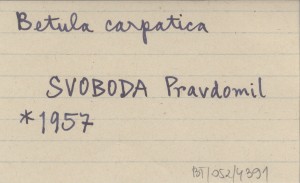 Betula carpatica
SVOBODA Pravdomil
*1957
BT/052/4391